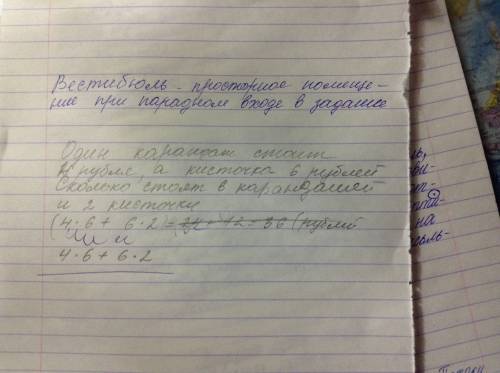 Вестибюль - просторное помеще-
ние при парадном входе в здание
Один карандаш стоит
4 рубля, а кисточка 6 рублей
Сколько стоят 6 карандашей
и 2 кисточки
(4·6 + 6·2) = 24 + 12 = 36 (рублей
4·6 + 6·2
на